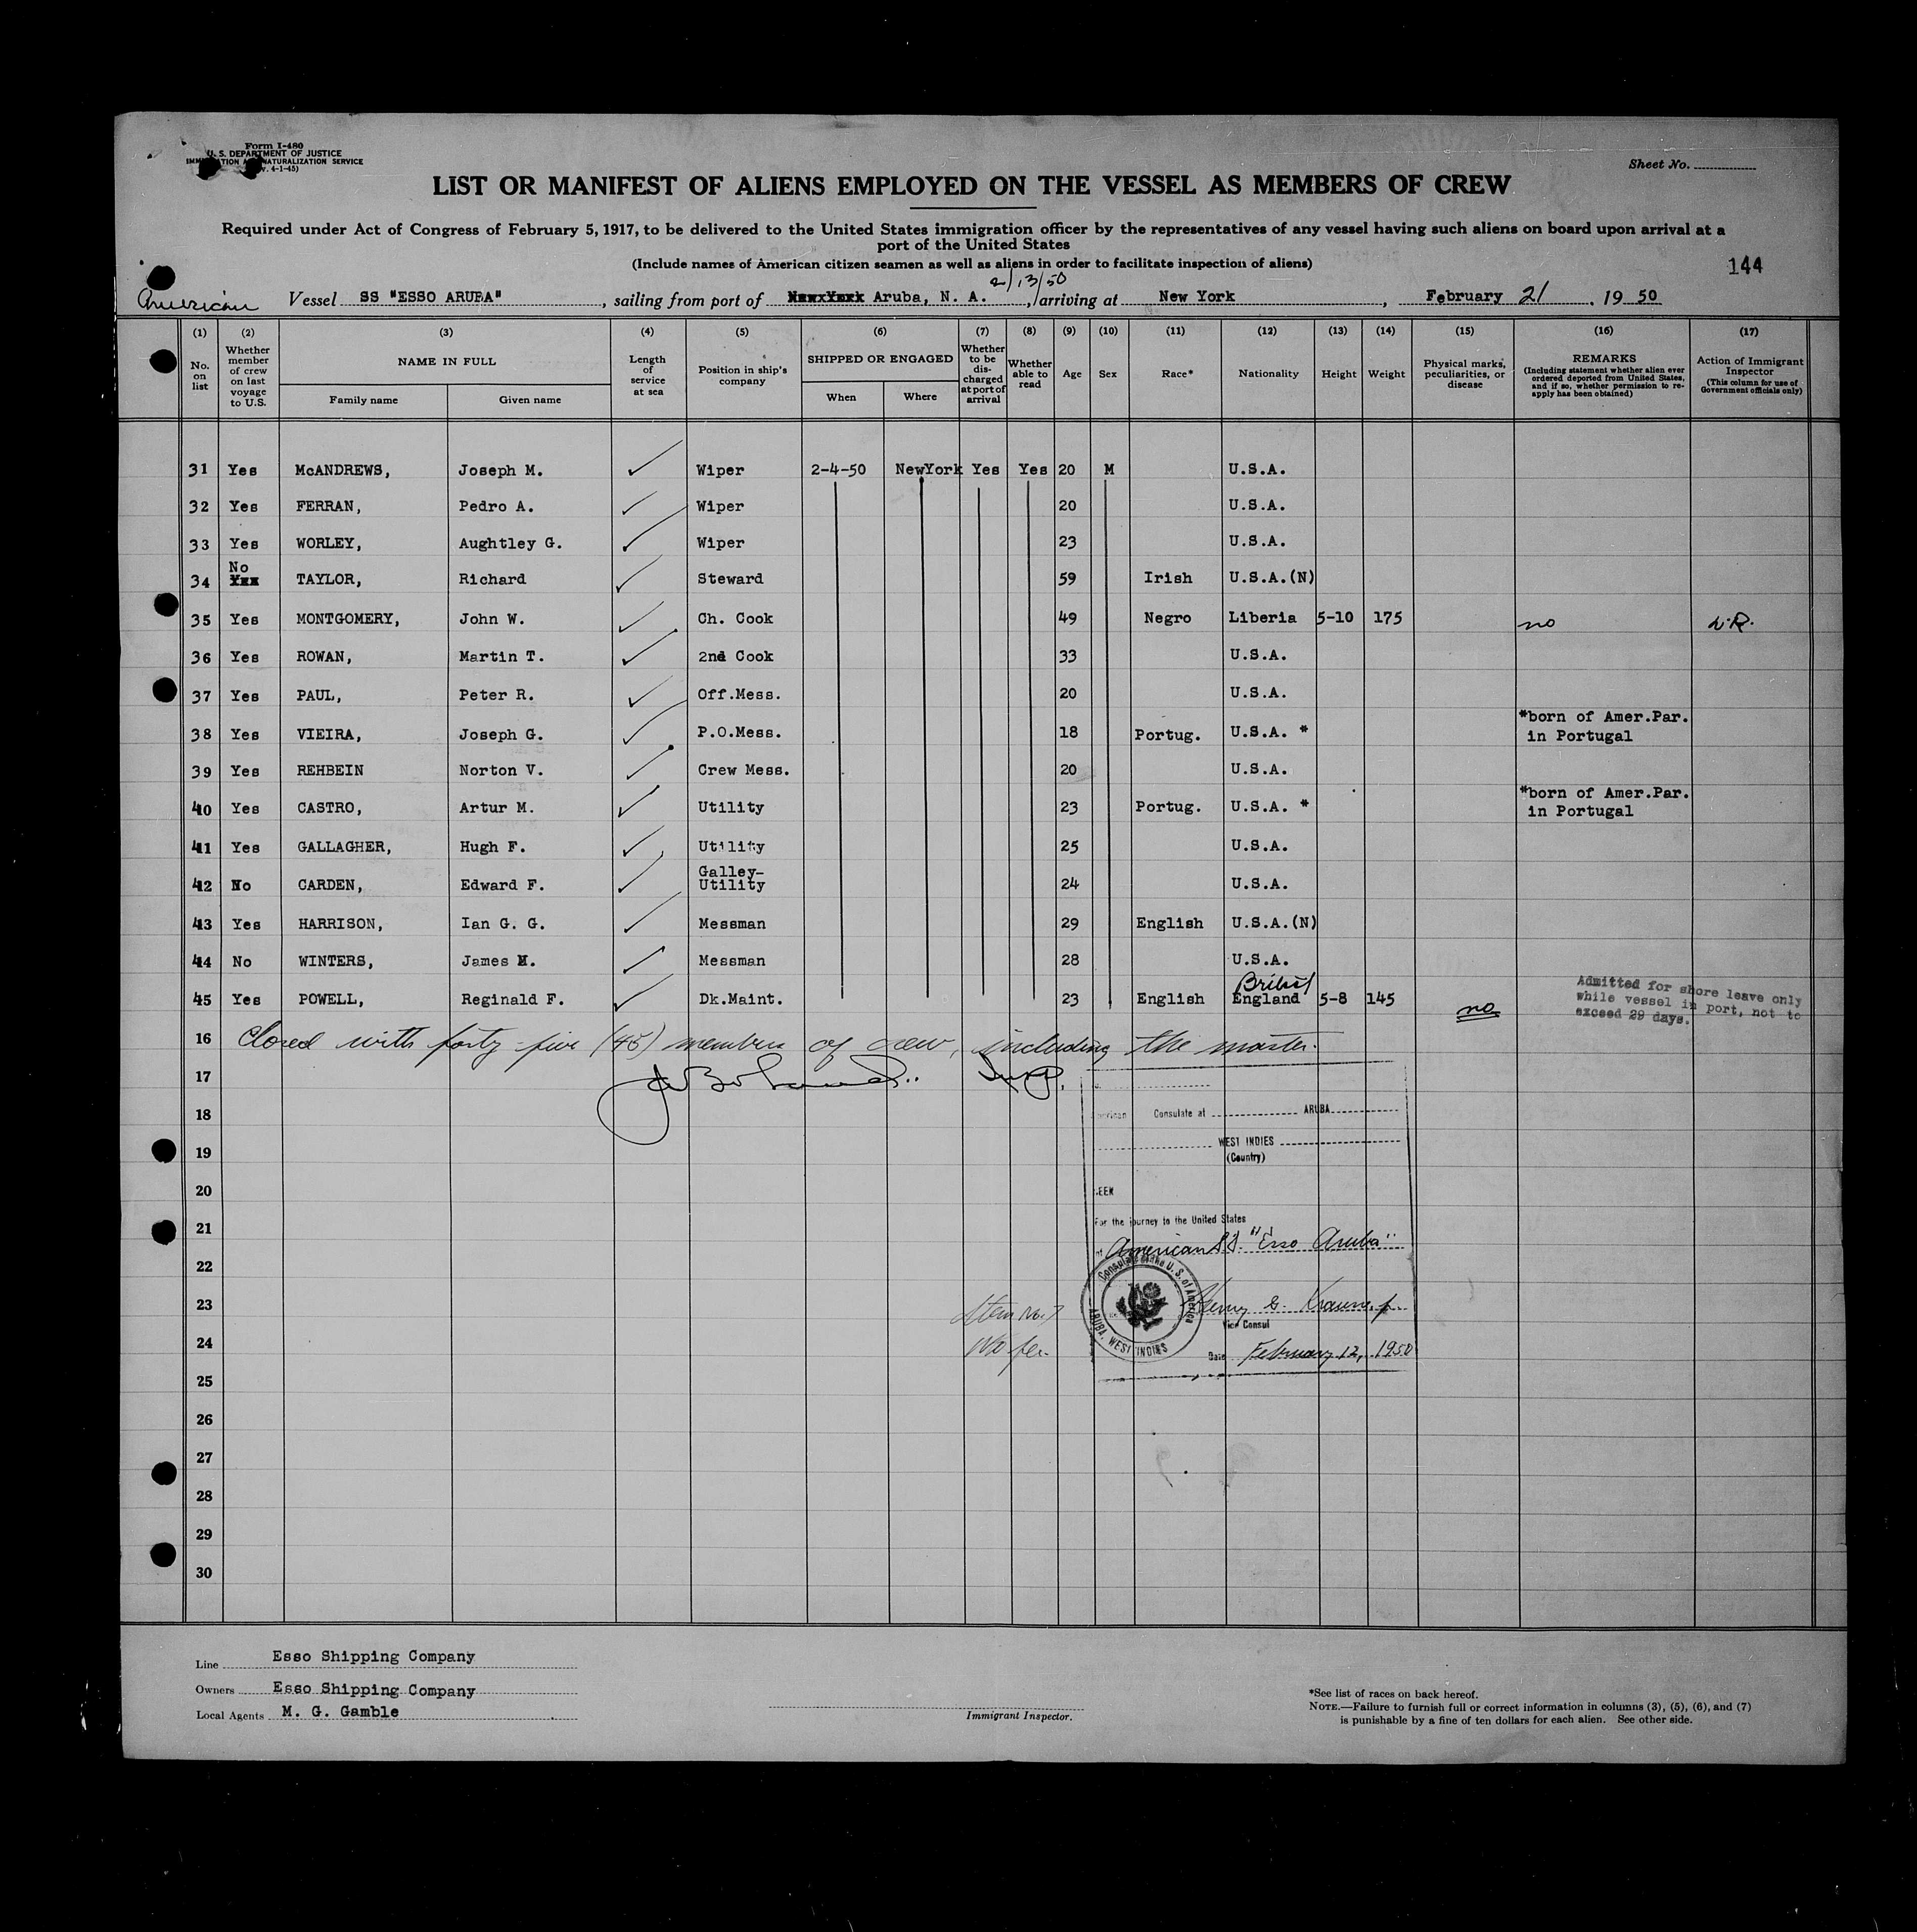 Form I-480
U. S. DEPARTMENT OF JUSTICE
IMMIGRATION AND NATURALIZATION SERVICE
(Rev. 4-1-45)
Sheet No.
LIST OR MANIFEST OF ALIENS EMPLOYED ON THE VESSEL AS MEMBERS OF CREW
Required under Act of Congress of February 5, 1917, to be delivered to the United States immigration officer by the representatives of any vessel having such aliens on board upon arrival at a
port of the United States
(Include names of American citizen seamen as well as aliens in order to facilitate inspection of aliens)
144
2/13/50
American Vessel SS "ESSO ARUBA", sailing from port of Aruba, N. A., arriving at New York, February 21, 19 50
(1) (2) (3) (4) (5) (6) (7) (8) (9) (10) (11) (12) (13) (14) (15) (16) (17)
No. on list
Whether member of crew on last voyage to U.S.
NAME IN FULL
Family name
Given name
Length of service at sea
Position in ship's company
SHIPPED OR ENGAGED
When
Where
Whether to be discharged at port of arrival
Whether able to read
Age
Sex
Race*
Nationality
Height
Weight
Physical marks, peculiarities, or disease
REMARKS
(Including statement whether alien ever ordered deported from United States, and if so, whether permission to reapply has been obtained)
Action of Immigrant Inspector
(This column for use of Government officials only)
31 Yes McANDREWS, Joseph M. Wiper 2-4-50 NewYork Yes Yes 20 M U.S.A.
32 Yes FERRAN, Pedro A. Wiper 20 U.S.A.
33 Yes WORLEY, Aughtley G. Wiper 23 U.S.A.
No
34 Yxx TAYLOR, Richard Steward 59 Irish U.S.A.(N)
35 Yes MONTGOMERY, John W. Ch. Cook 49 Negro Liberia 5-10 175 no
36 Yes ROWAN, Martin T. 2nd Cook 33 U.S.A.
37 Yes PAUL, Peter R. Off.Mess. 20 U.S.A.
38 Yes VIEIRA, Joseph G. P.O.Mess. 18 Portug. U.S.A. * *born of Amer.Par.
in Portugal
39 Yes REHBEIN Norton V. Crew Mess. 20 U.S.A.
40 Yes CASTRO, Artur M. Utility 23 Portug. U.S.A. * *born of Amer.Par.
in Portugal
41 Yes GALLAGHER, Hugh F. Utility 25 U.S.A.
42 No CARDEN, Edward F. Galley-Utility 24 U.S.A.
43 Yes HARRISON, Ian G. G. Messman 29 English U.S.A.(N)
44 No WINTERS, James M. Messman 28 U.S.A.
British
45 Yes POWELL, Reginald F. Dk.Maint. 23 English England 5-8 145 no
Admitted for shore leave only
while vessel in port, not to
exceed 29 days.
16 Closed with forty-five (45) members of crew, including the master.
17
18 American Consulate at ARUBA
19 WEST INDIES
(Country)
20 SEEN
21 For the journey to the United States
of American S.S. "Esso Aruba"
22
Consulate of the U. S. of America
ARUBA, WEST INDIES
23
Vice Consul
24
Date February 12, 1950
25
26
27
28
29
30
Line Esso Shipping Company
Owners Esso Shipping Company
Local Agents M. G. Gamble
Immigrant Inspector.
*See list of races on back hereof.
NOTE.—Failure to furnish full or correct information in columns (3), (5), (6), and (7)
is punishable by a fine of ten dollars for each alien. See other side.